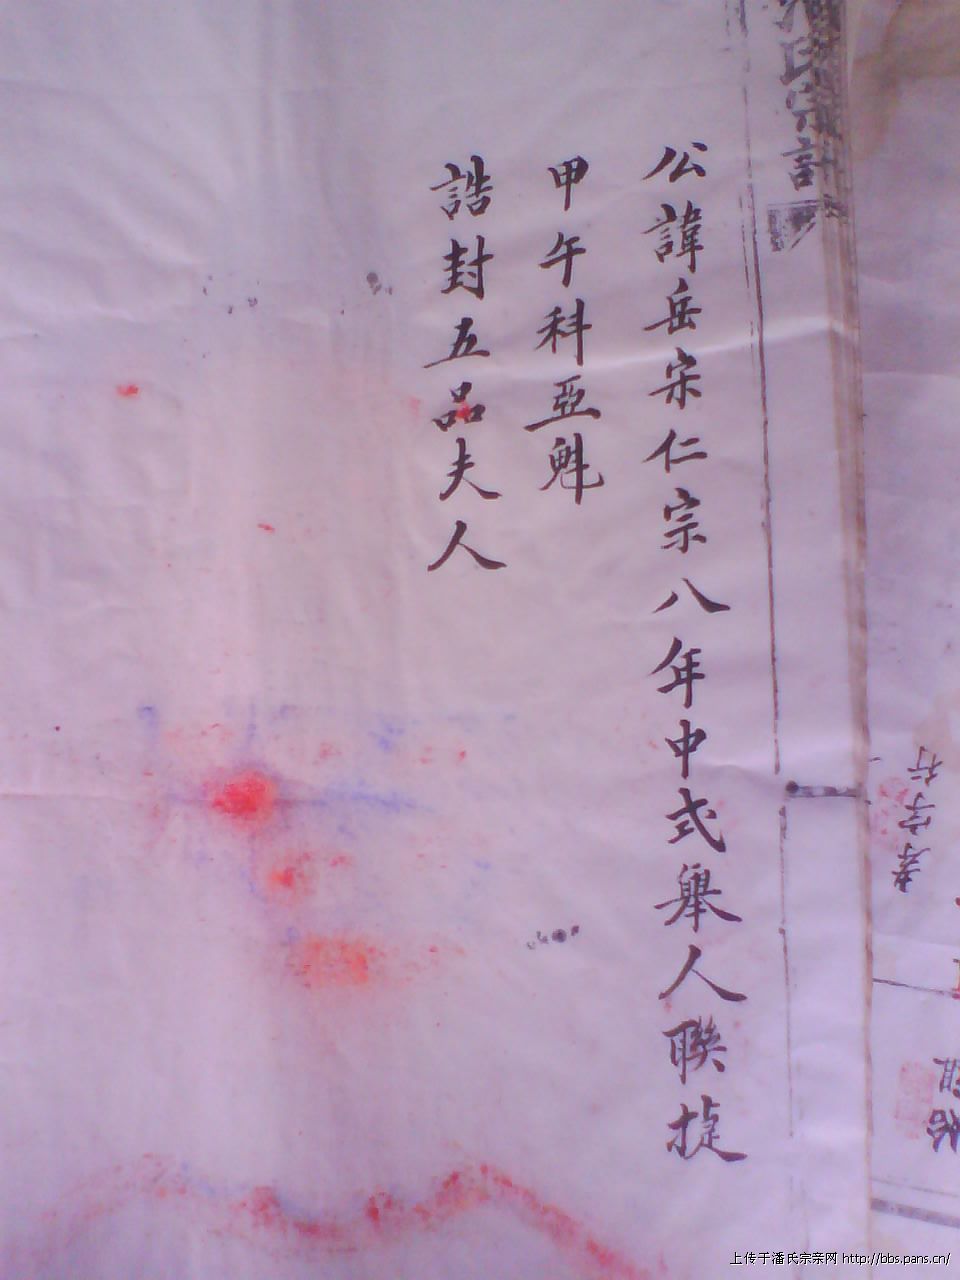 公諱岳宋仁宗八年中式舉人聯捷
甲午科亞魁
誥封五品夫人
氏宗
孝字行
祖
上传于潘氏宗亲网 http://bbs.pans.cn/